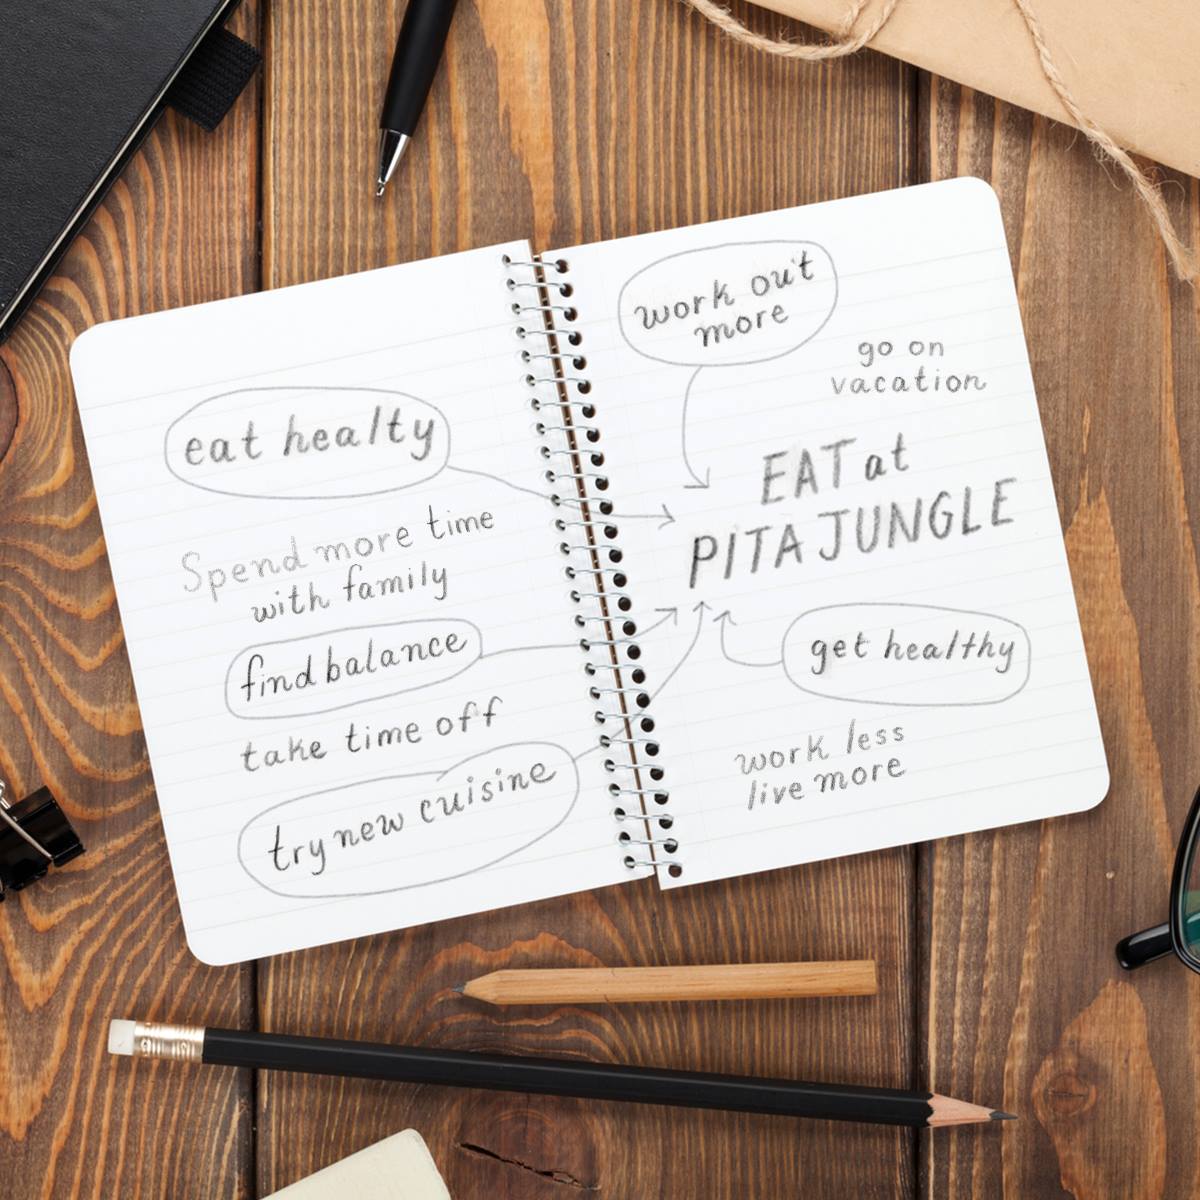 eat healty
Spend more time
with family
find balance
take time off
try new cuisine
work out
more
go on
vacation
EAT at
PITA JUNGLE
get healthy
work less
live more